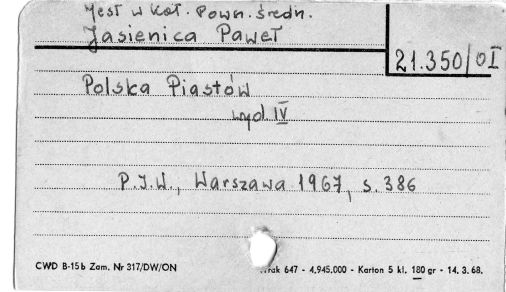 jest w Koł. Pown. średn.
Jasienica Paweł
21.350/OI
Polska Piastów
wyd. IV
P.I.W., Warszawa 1967, s. 386
CWD B-15b Zam. Nr 317/DW/ON
rak 647 - 4.945.000 - Karton 5 kl. 180 gr - 14. 3. 68.